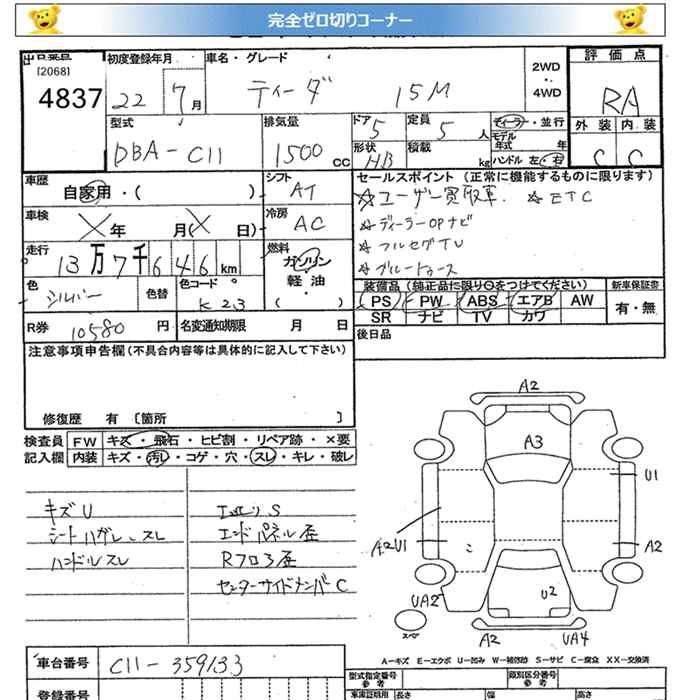 完全ゼロ切りコーナー
出品番号
[2068]
4837
初度登録年月
22 7月
車名・グレード
ティーダ 15M
2WD
・
4WD
評価点
RA
外装 内装
C C
型式
DBA-C11
排気量
1500 cc
ドア 5
定員 5 人
形状 HB
積載 kg
ディーラー・並行
モデル年式 年
ハンドル 左・右
車歴
自家用・( )
シフト
AT
セールスポイント (正常に機能するものに限ります)
☆ユーザー買取車. ☆ETC
☆ディーラーOPナビ
☆フルセグTV
☆ブルートゥース
車検
X年 月(X 日)
冷房
AC
走行
13万7千646km
燃料
ガソリン
軽油・
( )
色
シルバー
色替
色コード
K23
装備品 (純正品に限り○をつけてください)
PS PW ABS エアB AW
SR ナビ TV カワ
新車保証書
有・無
R券 10580円
名変通知期限 月 日
後日品
注意事項申告欄(不具合内容等は具体的に記入して下さい)
修復歴 有 〔箇所 〕
検査員記入欄
FW キズ・飛石・ヒビ割・リペア跡・×要
内装 キズ・汚れ・コゲ・穴・スレ・キレ・破レ
キズU
シートハガレ、スレ
ハンドルスレ
エンドパネル歪
Rフロア歪
センターサイドメンバーC
A2
A3
U1
A2U1
A2
U2
UA2
スペア
A2
UA4
A-キズ E-エクボ U-凹み W-補修跡 S-サビ C-腐食 XX-交換済
車台番号
C11-359133
登録番号
型式指定番号
参考
類別区分番号
参考
車庫証明用
長さ
幅
高さ